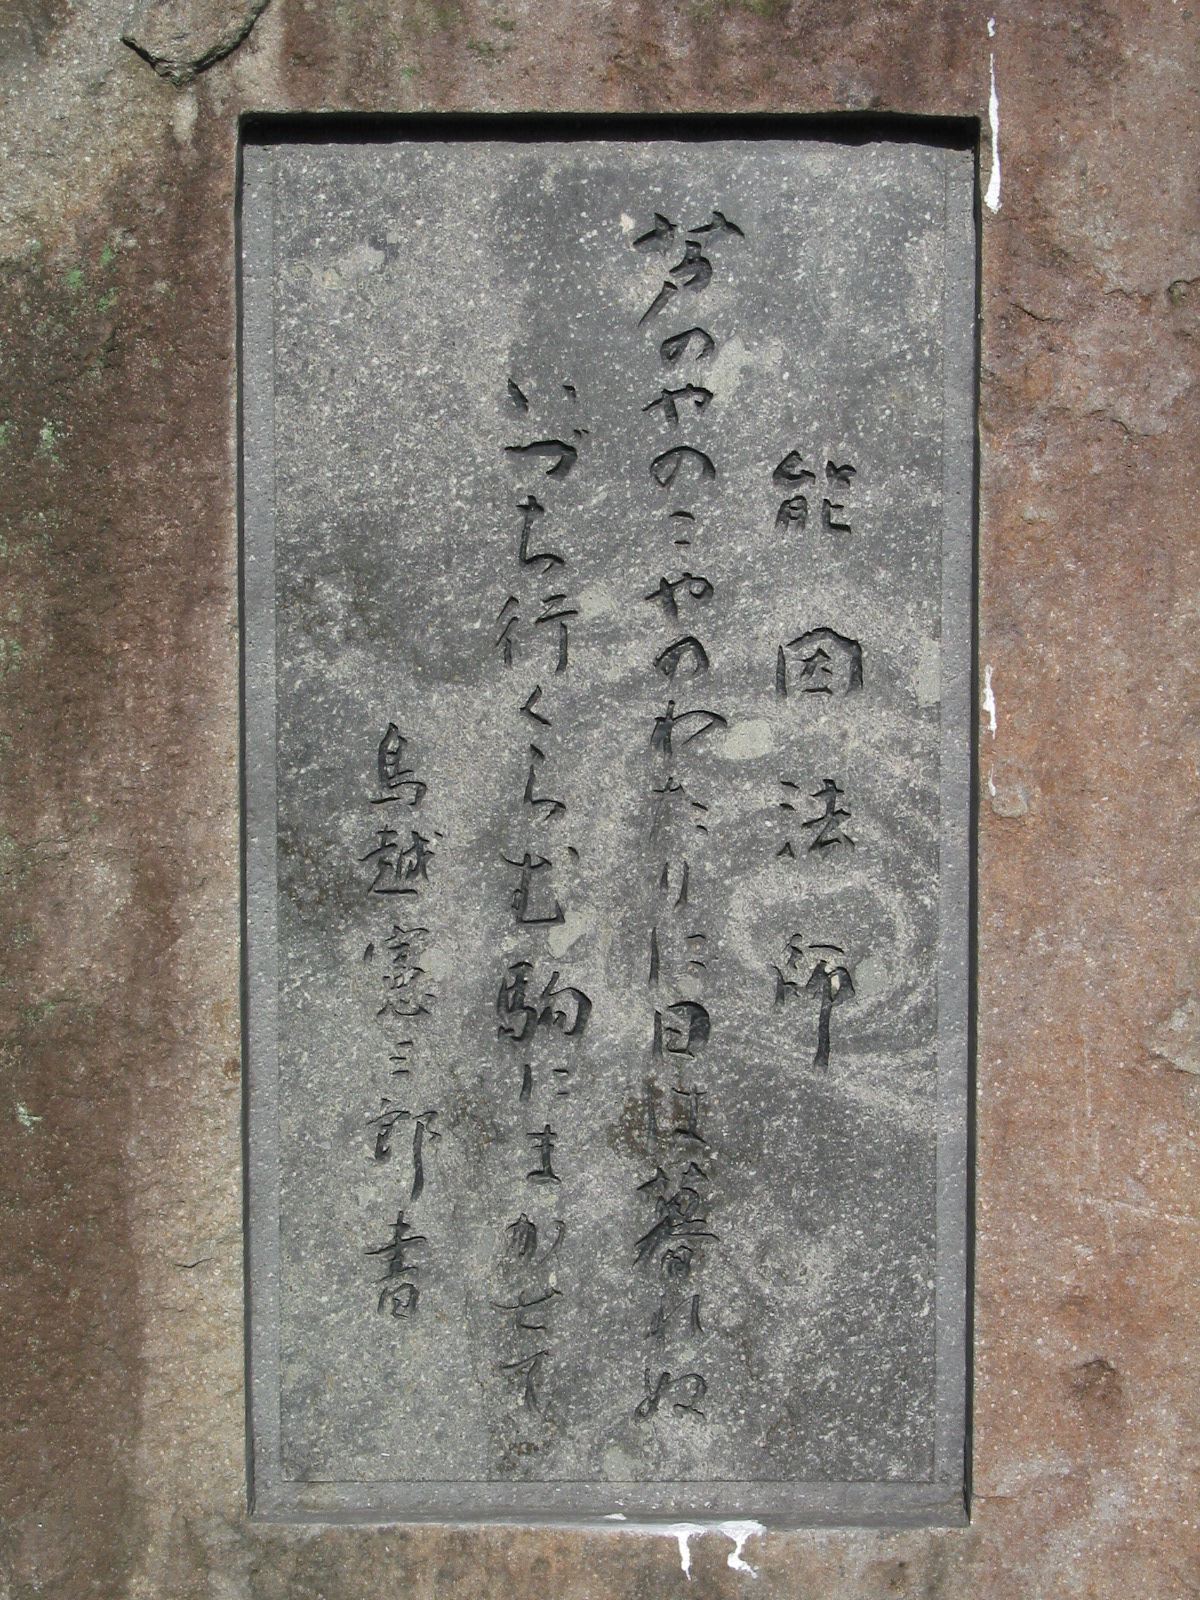 能因法師
芦のやのこやのわたりに日は暮れぬ
いづち行くらむ駒にまかせて
鳥越憲三郎書